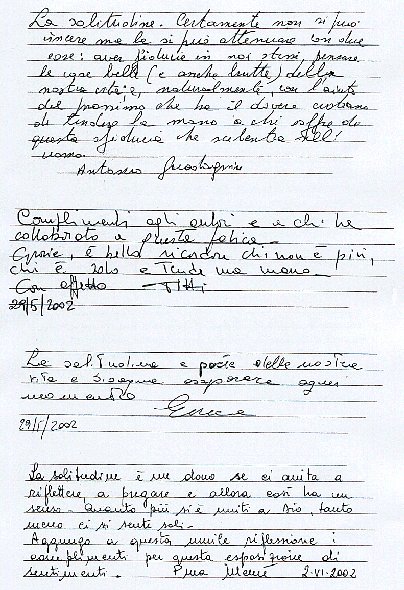 La solitudine. Certamente non si può
vincere ma la si può attenuare con due
cose: aver fiducia in noi stessi, pensare
le cose belle (e anche brutte) della
nostra vita e, naturalmente, con l'aiuto
del prossimo che ha il dovere cristiano
di tendere la mano a chi soffre di
questa sfiducia che sente
uomo
Antonio
Complimenti agli autori e a chi ha
collaborato a questa fatica -
Grazie, è bello ricordare chi non è più,
chi è solo e tende una mano.
Con affetto - Titti
29/5/2002
La solitudine e parte della nostra
vita e bisogna assaporare ogni
momento
29/5/2002
La solitudine è un dono se ci aiuta a
riflettere, a pregare e allora così ha un
senso. Quanto più si è uniti a Dio, tanto
meno ci si sente soli -
Aggiungo a questa umile riflessione i
complimenti per questa esposizione di
sentimenti. Pina 2-VI-2002